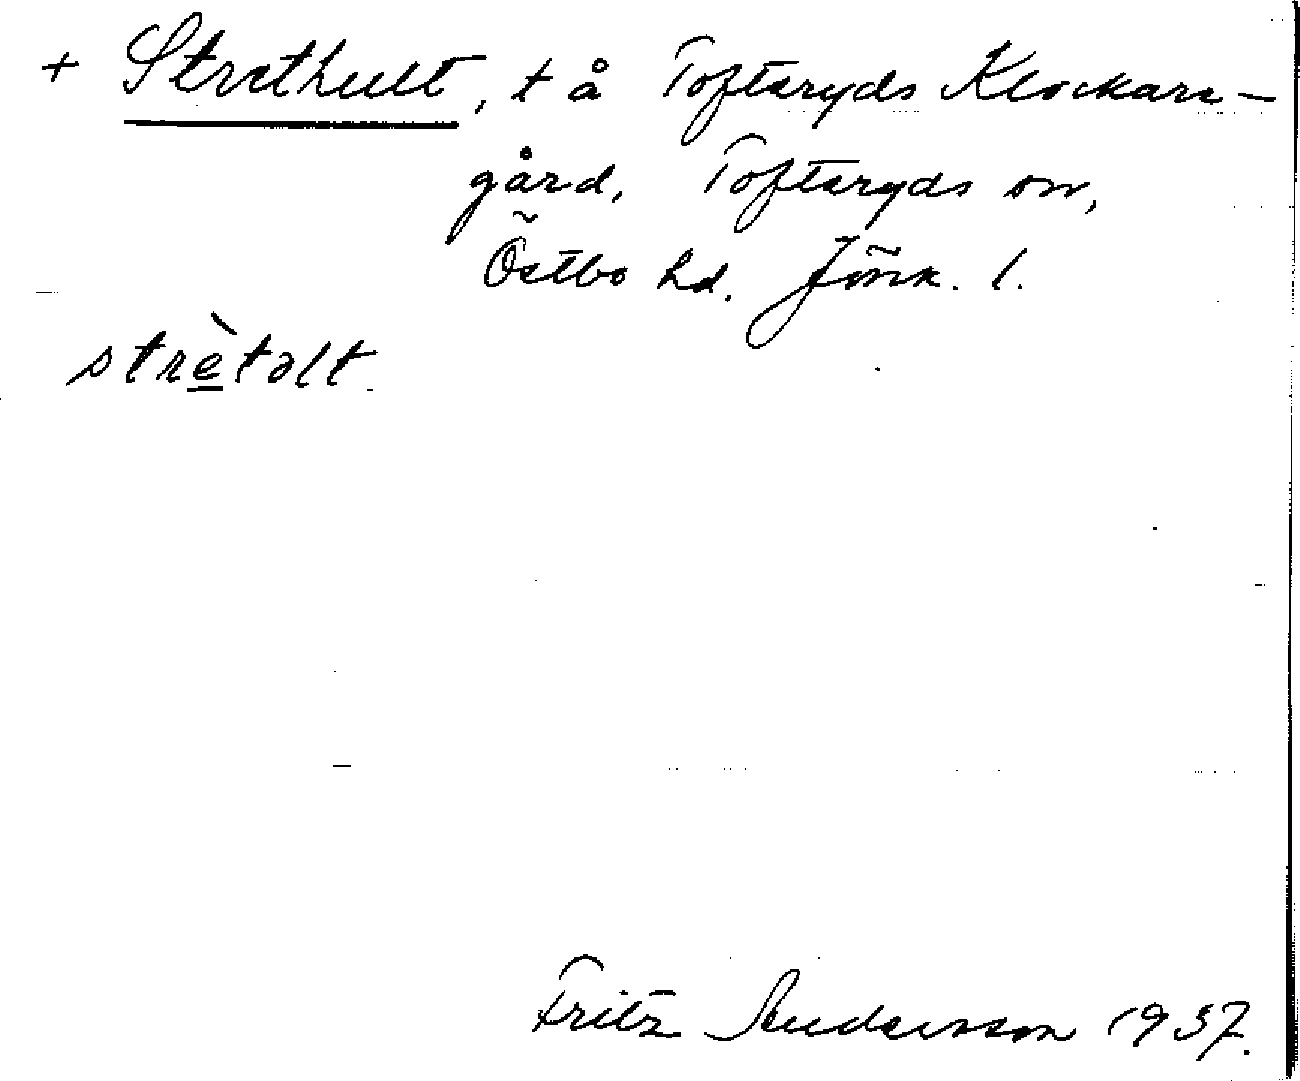 + Strethult, t å Toftaryds Klockare-
gård, Toftaryds sn,
Östbo hd. Jönk. l.
strètəlt
Fritz Andersson 1937.